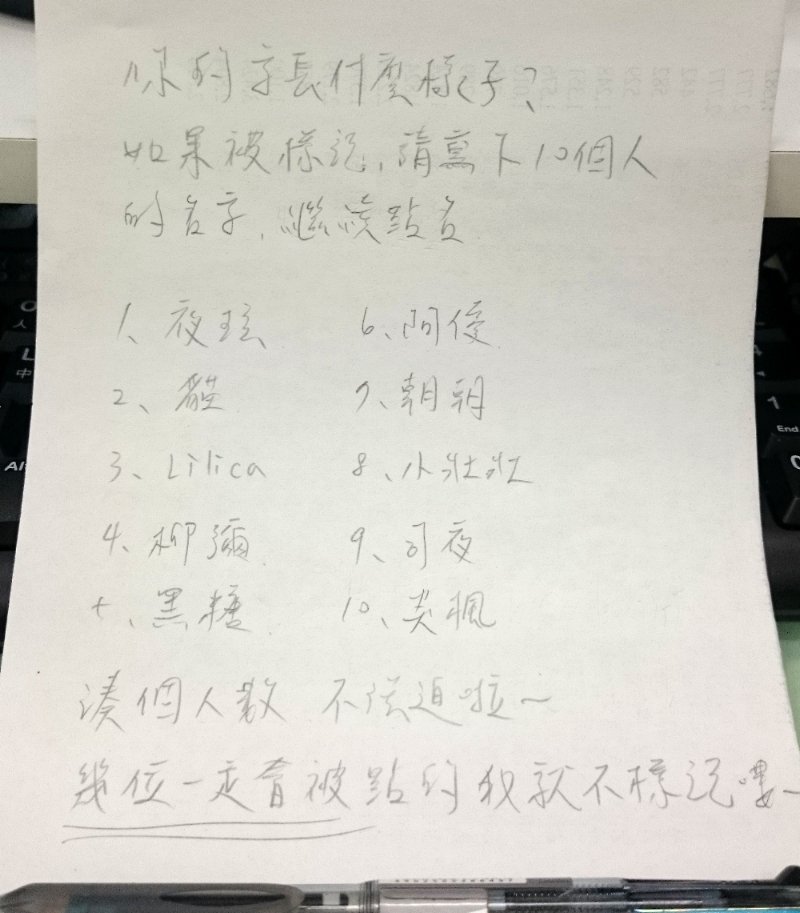 你的字長什麼樣子?
如果被標記,請寫下10個人
的名字,繼續點名
1、夜玹
2、
3、Lilica
4、柳彌
5、黑糖
6、阿優
7、朝朝
8、小壯壯
9、司夜
10、炎楓
湊個人數 不強迫啦~
幾位一定會被點的我就不標記嘍~
End
1